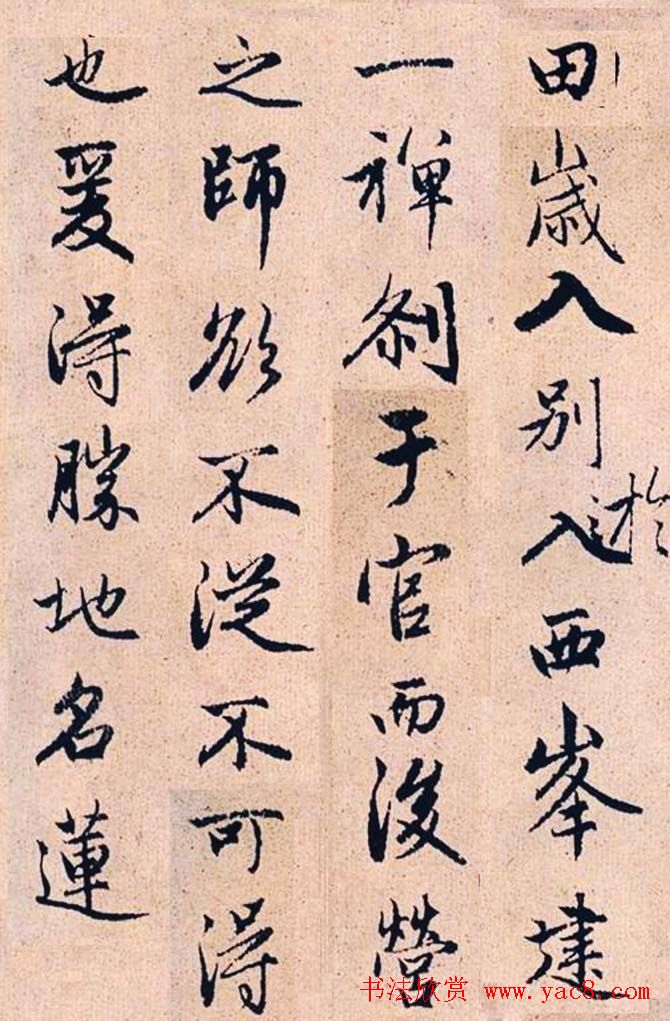 田歲入別入於西峯建
一禪刹于官而後營
之師欲不從不可得
也爰得勝地名蓮
书法欣赏 www.yac8.com